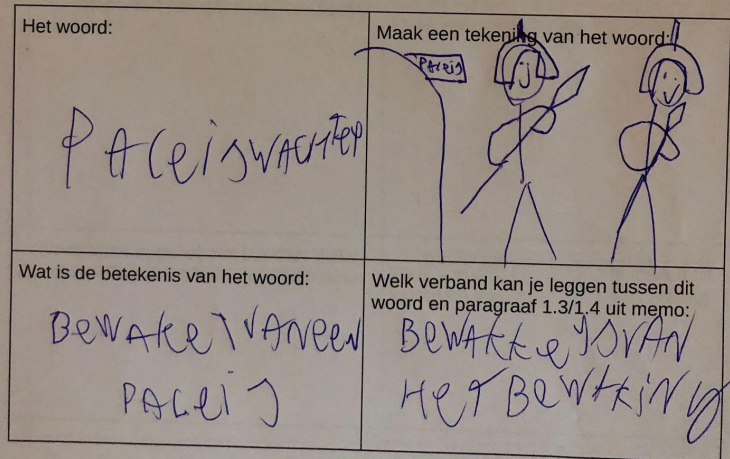 Het woord:
Paleiswachter
Maak een tekening van het woord:
Paleis
Wat is de betekenis van het woord:
Bewaker van een
paleis
Welk verband kan je leggen tussen dit
woord en paragraaf 1.3/1.4 uit memo:
Bewakkers van
Het Bewaking